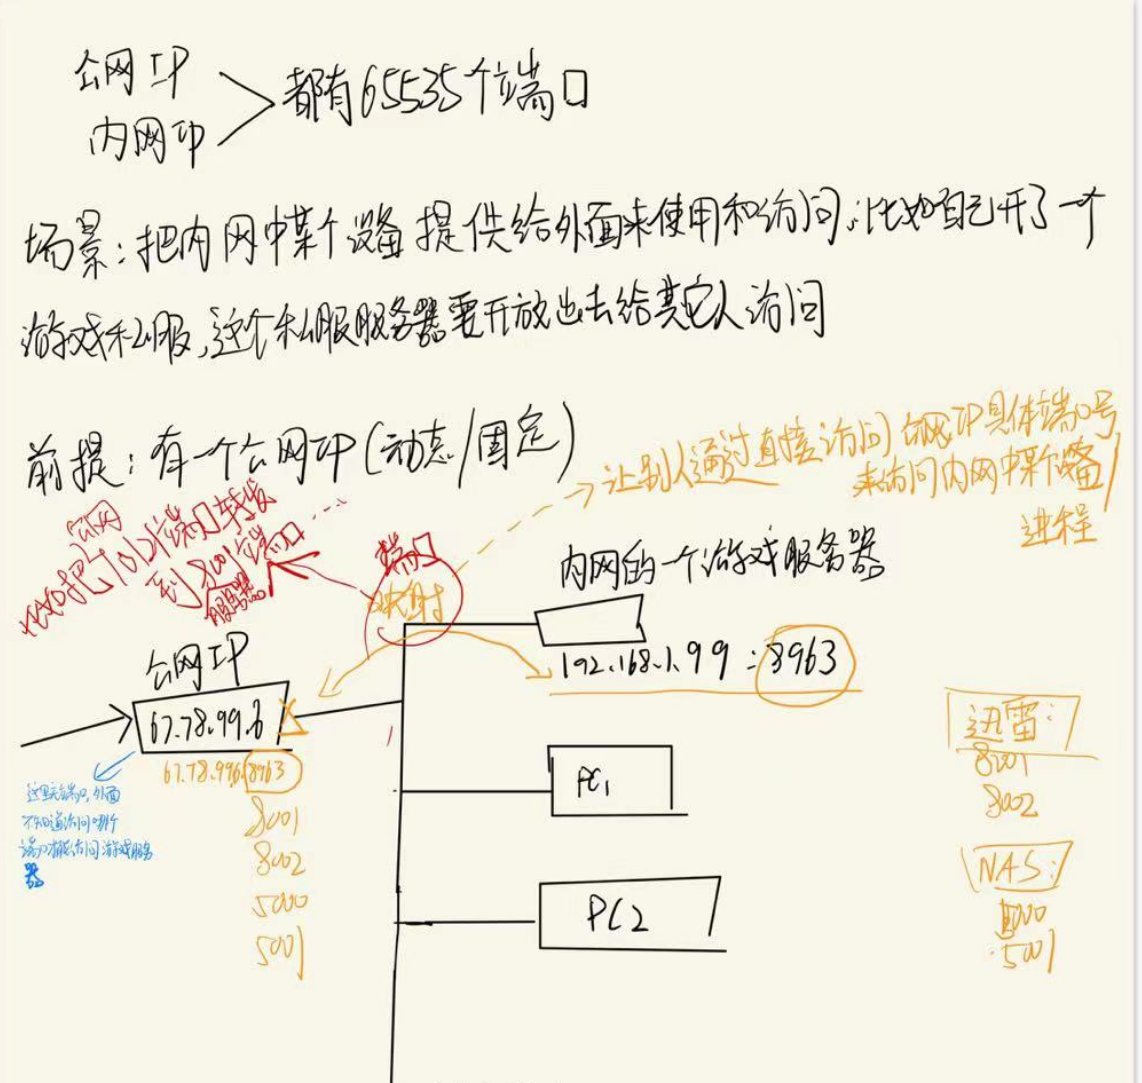 公网IP
内网IP
都有65535个端口
场景:把内网中某个设备提供给外面来使用和访问;比如自己开了一个
游戏私服,这个私服服务器要开放出去给其它人访问
前提:有一个公网IP(动态/固定)
让别人通过直接访问公网IP具体端口号
来访问内网中某个设备/
进程
公网
把1021端口转发
到8001端口
服务器
端口
映射
内网的一个游戏服务器
192.168.1.99:8963
公网IP
67.78.99.6
67.78.99.6:8963
8001
8002
5000
5001
这里无端口,外面
不知道访问哪个
端口才能访问游戏服务
器
PC1
PC2
迅雷:
8001
8002
NAS:
5000
5001